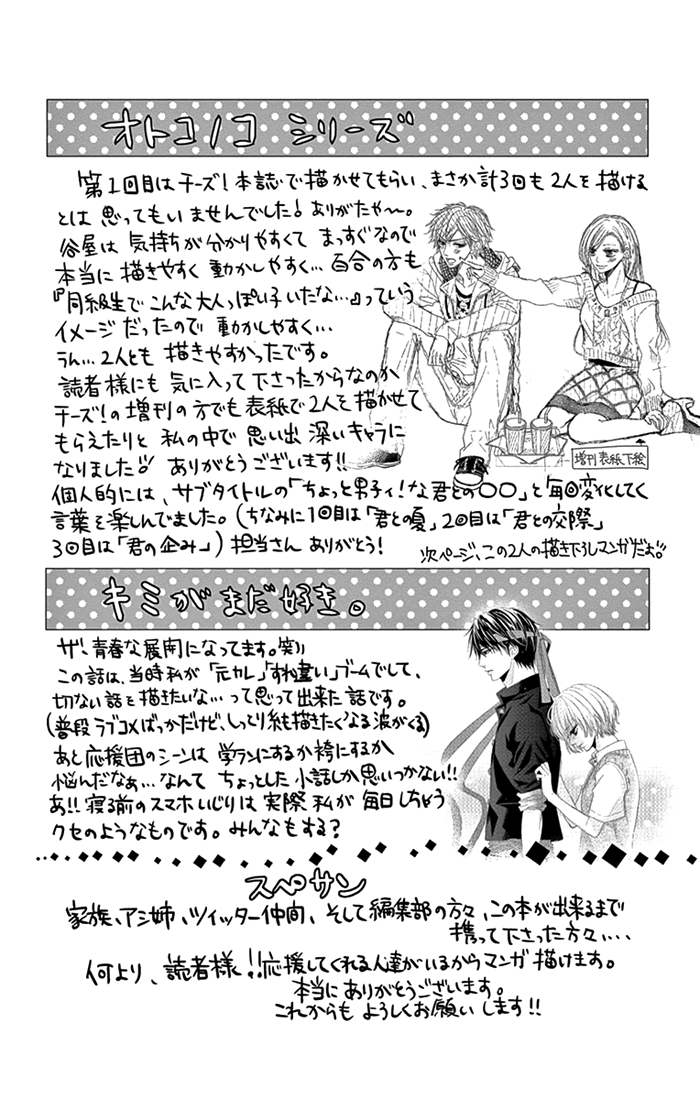 オトコノコ シリーズ
第1回目はチーズ!本誌で描かせてもらい、まさか計3回も2人を描ける
とは思ってもいませんでした!ありがたや〜。
谷屋は気持ちが分かりやすくてまっすぐなので
本当に描きやすく動かしやすく…百合の方も
『同級生でこんな大人っぽい子いたな…』っていう
イメージだったので動かしやすく…
うん…2人とも描きやすかったです。
読者様にも気に入って下さったからなのか
チーズ!の増刊の方でも表紙で2人を描かせて
もらえたりと私の中で思い出深いキャラに
なりました!!ありがとうございます!!
増刊表紙下絵
個人的には、サブタイトルの「ちょっと男子ィ!な君との〇〇」と毎回変化してく
言葉を楽しんでました。(ちなみに1回目は「君との夏」2回目は「君との交際」
3回目は「君の企み」)担当さんありがとう!
次ページ、この2人の描き下ろしマンガだよ!!
キミがまだ好き。
ザ・青春な展開になってます。笑)))
この話は、当時私が「元カレ」「すれ違い」ブームでして、
切ない話を描きたいな…って思って出来た話です。
(普段ラブコメばっかだけど、しっとり系も描きたくなる波がくる)
あと応援団のシーンは学ランにするか袴にするか
悩んだなぁ…なんてちょっとした小話しか思いつかない!!
あ!!寝る前のスマホいじりは実際私が毎日しちゃう
クセのようなものです。みんなもする?
スペサン
家族、アシ姉、ツイッター仲間、そして編集部の方々、この本が出来るまで
携って下さった方々...
何より、読者様!!応援してくれる人達がいるからマンガ描けます。
本当にありがとうございます。
これからもよろしくお願いします!!